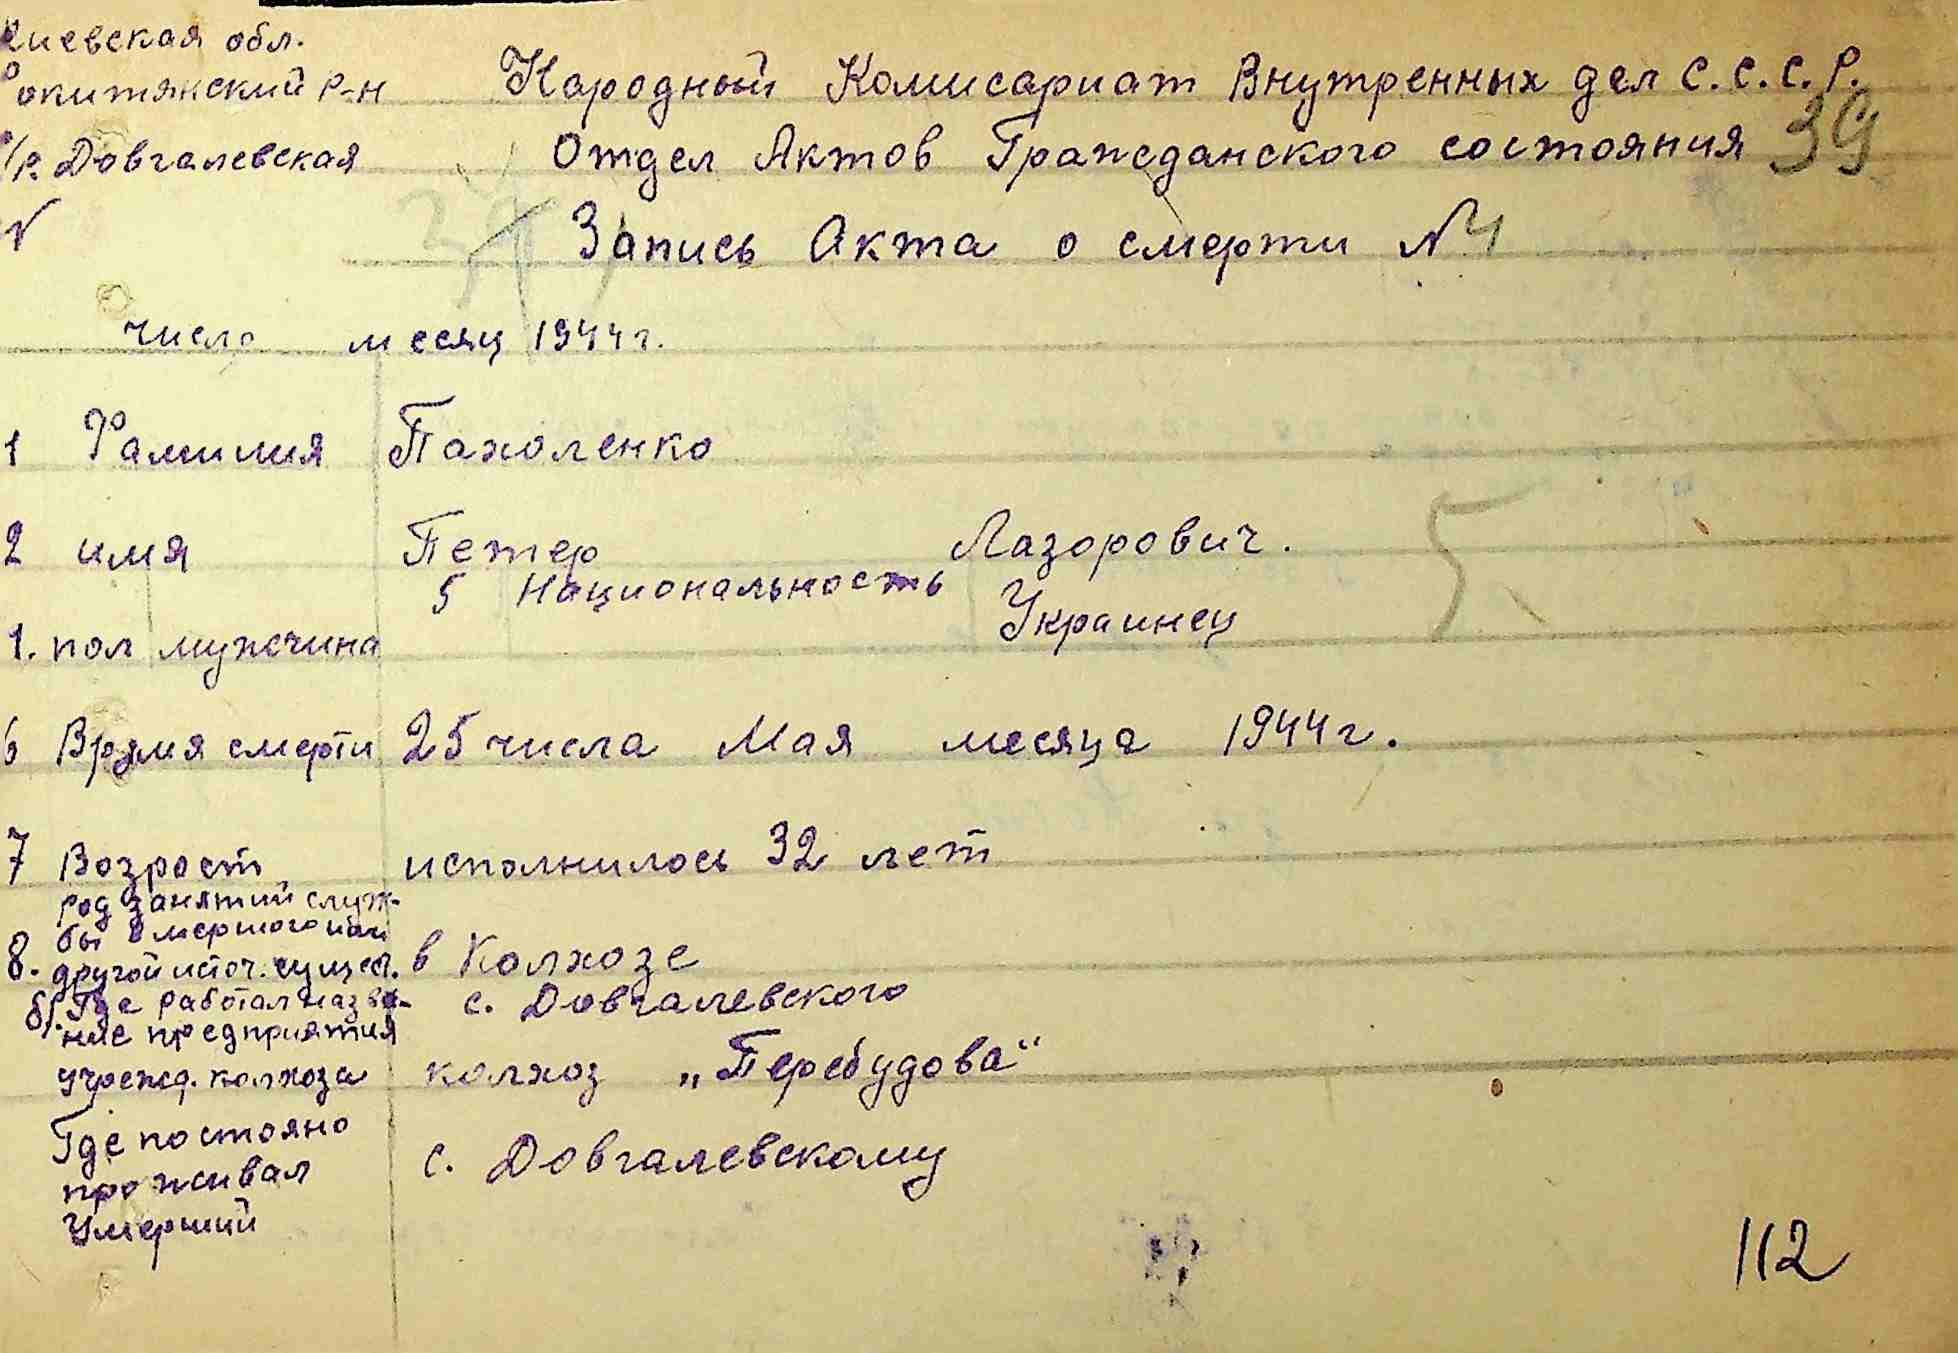 Киевская обл.
Рокитянский р-н
Народный Комисариат Внутренных дел С.С.С.Р.
с/р. Довгалевская
Отдел Актов Гражданского состояния 39
№
Запись Акта о смерти №1
число месяц 1944 г.
1 Фамилия Пахоленко
2 имя Петер Лазорович.
5 Национальность Украинец
5
1. пол мужчина
6 Время смерти 25 числа Мая месяца 1944 г.
7 Возрост исполнилось 32 лет
род занятий служ-
бы умершого или
8. другой источ. сущест. в Колхозе
б). Где работал назва- с. Довгалевского
ние предприятия
учрежд. колхоза колхоз „Перебудова“
Где постояно
проживал с. Довгалевскому
Умерший
112